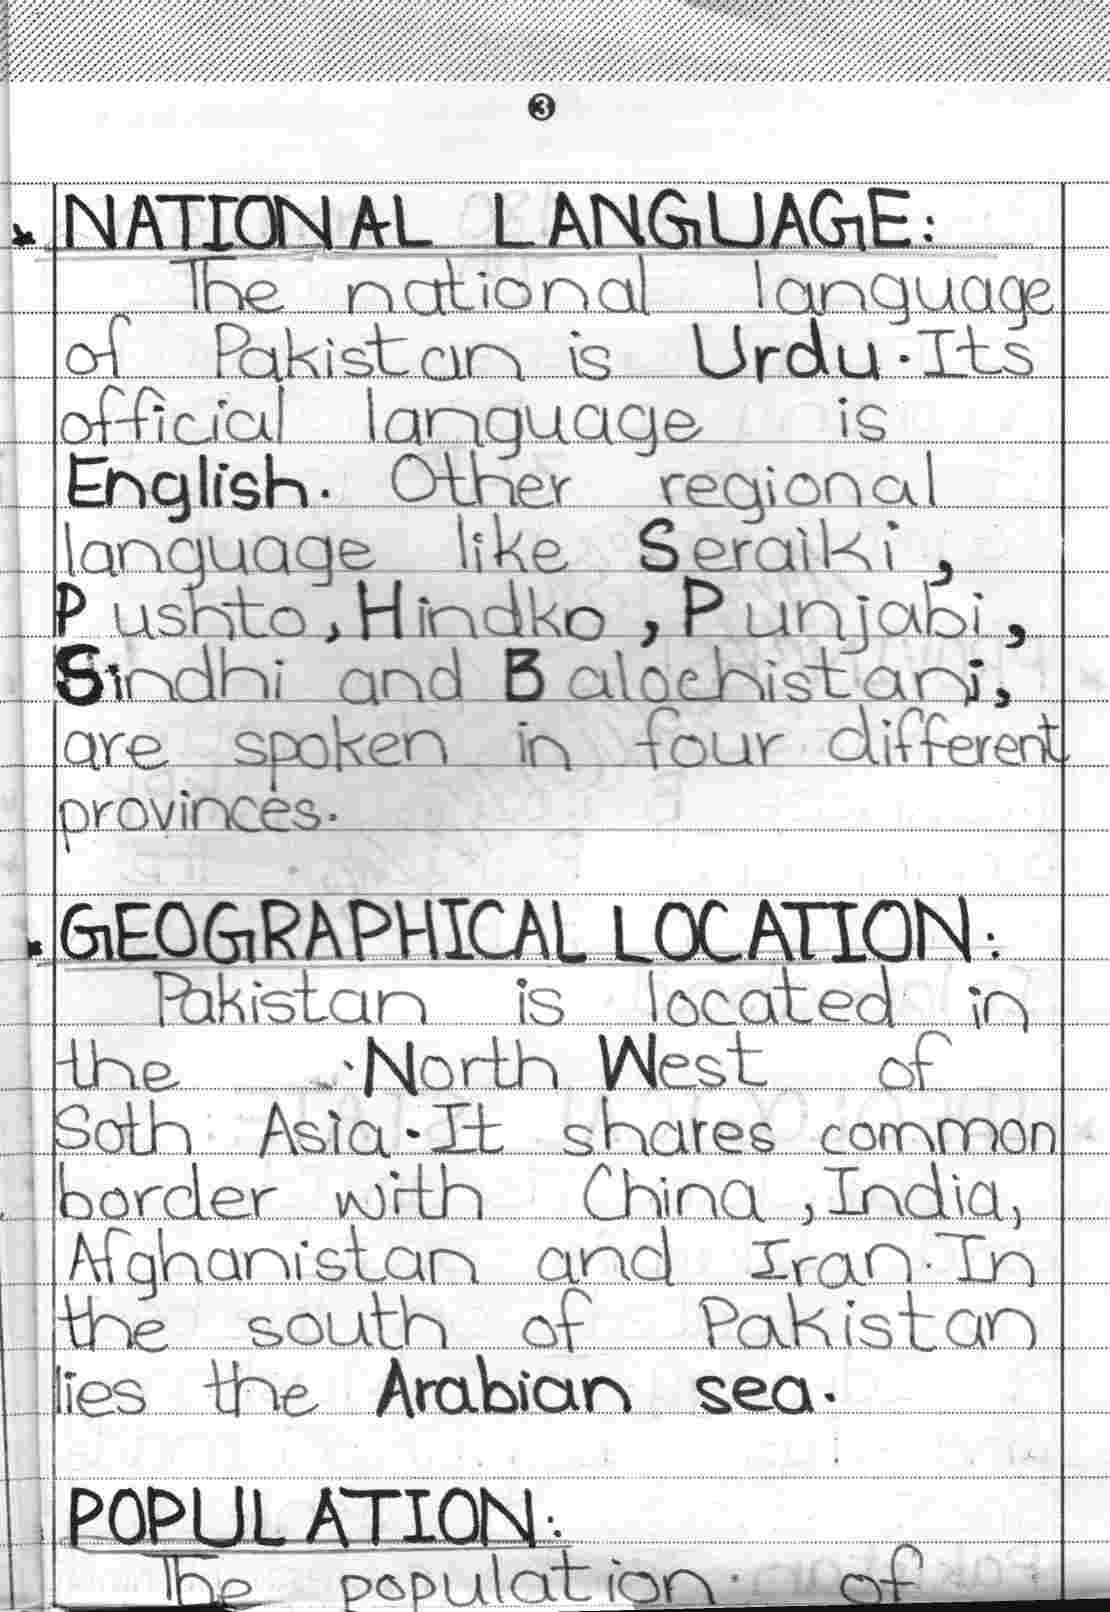 3
* NATIONAL LANGUAGE:
The national language
of Pakistan is Urdu. Its
official language is
English. Other regional
language like Seraiki,
Pushto, Hindko, Punjabi,
Sindhi and Balochistani,
are spoken in four different
provinces.
* GEOGRAPHICAL LOCATION:
Pakistan is located in
the North West of
Soth Asia. It shares common
border with China, India,
Afghanistan and Iran. In
the south of Pakistan
lies the Arabian sea.
POPULATION:
The population of